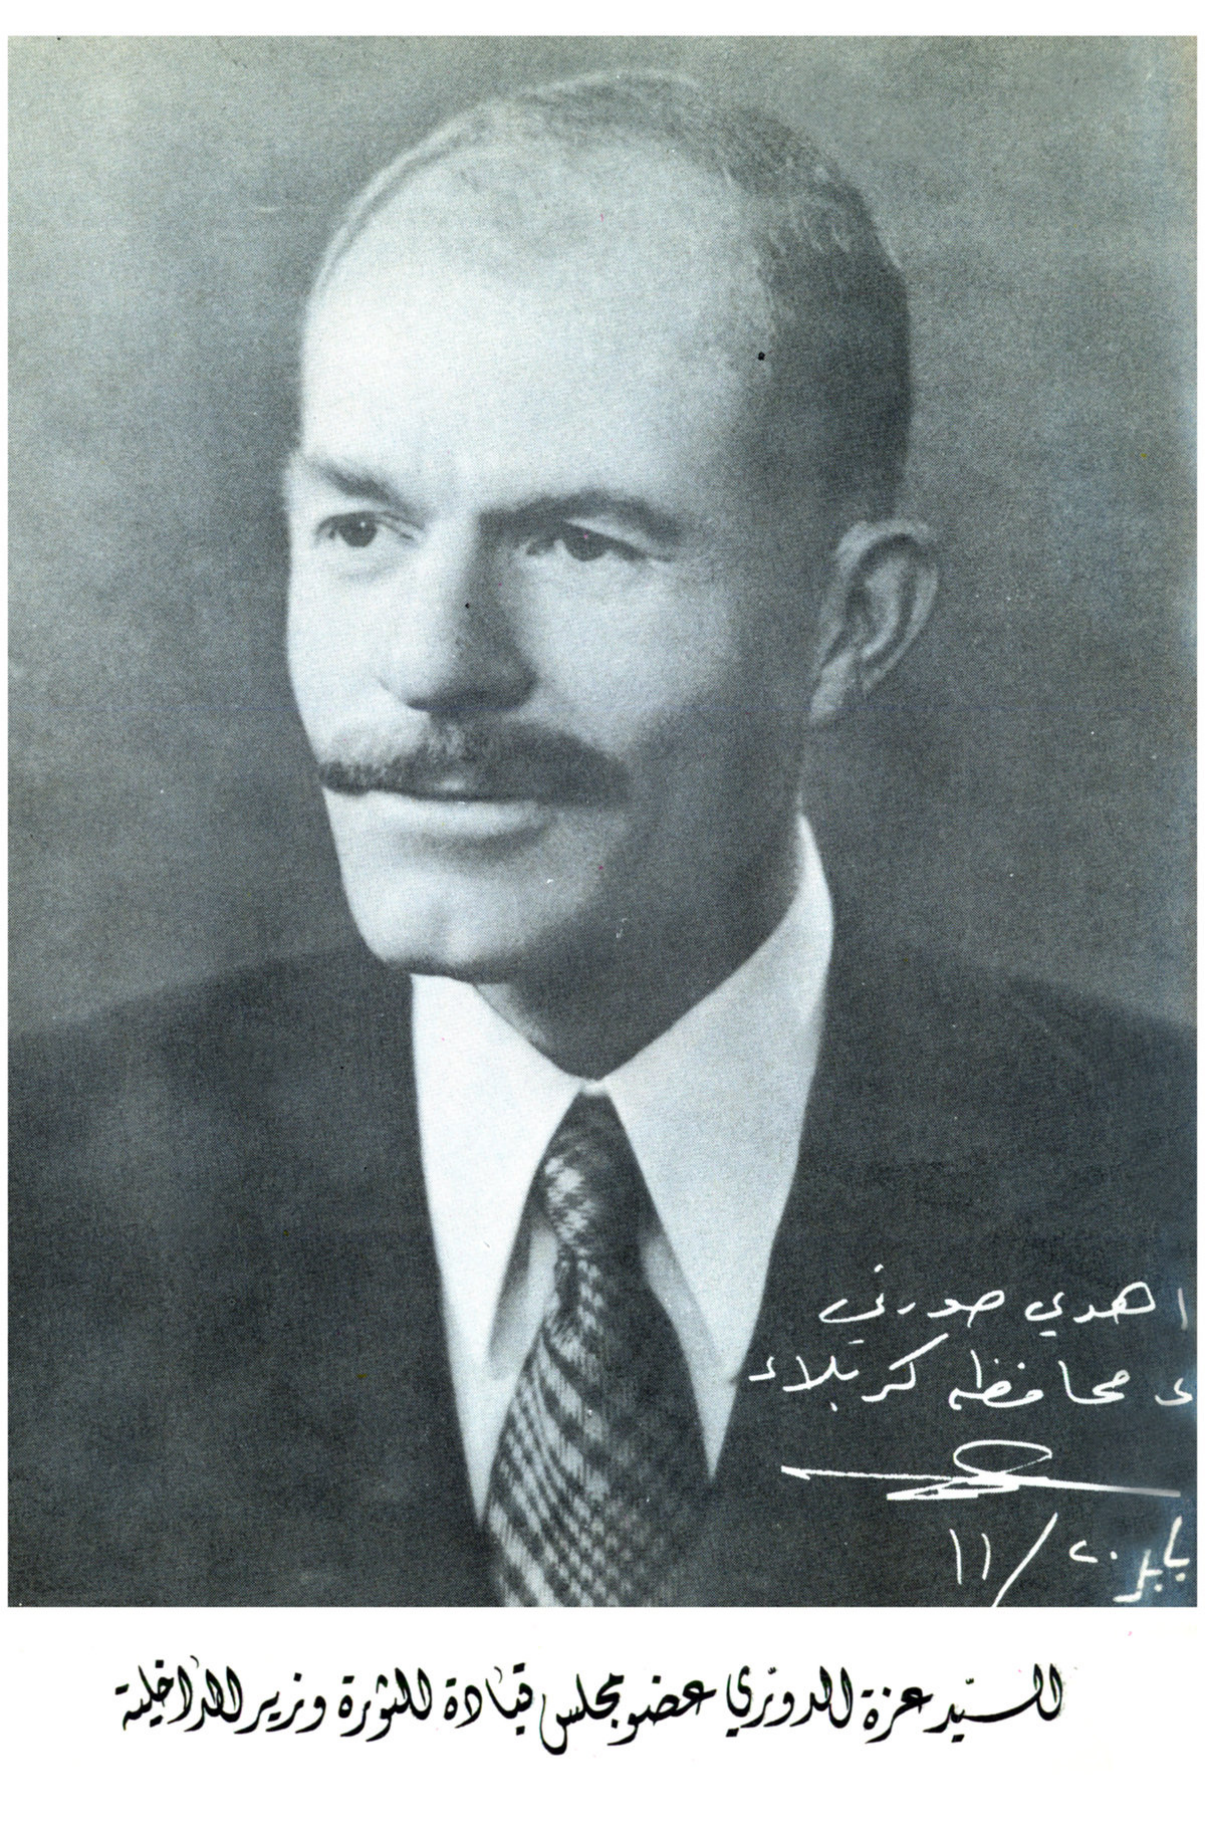 اهدي صورتي
محافظة كربلاء
٢٠/١١
السيد عزة الدوري عضو مجلس قيادة الثورة وزير الداخلية